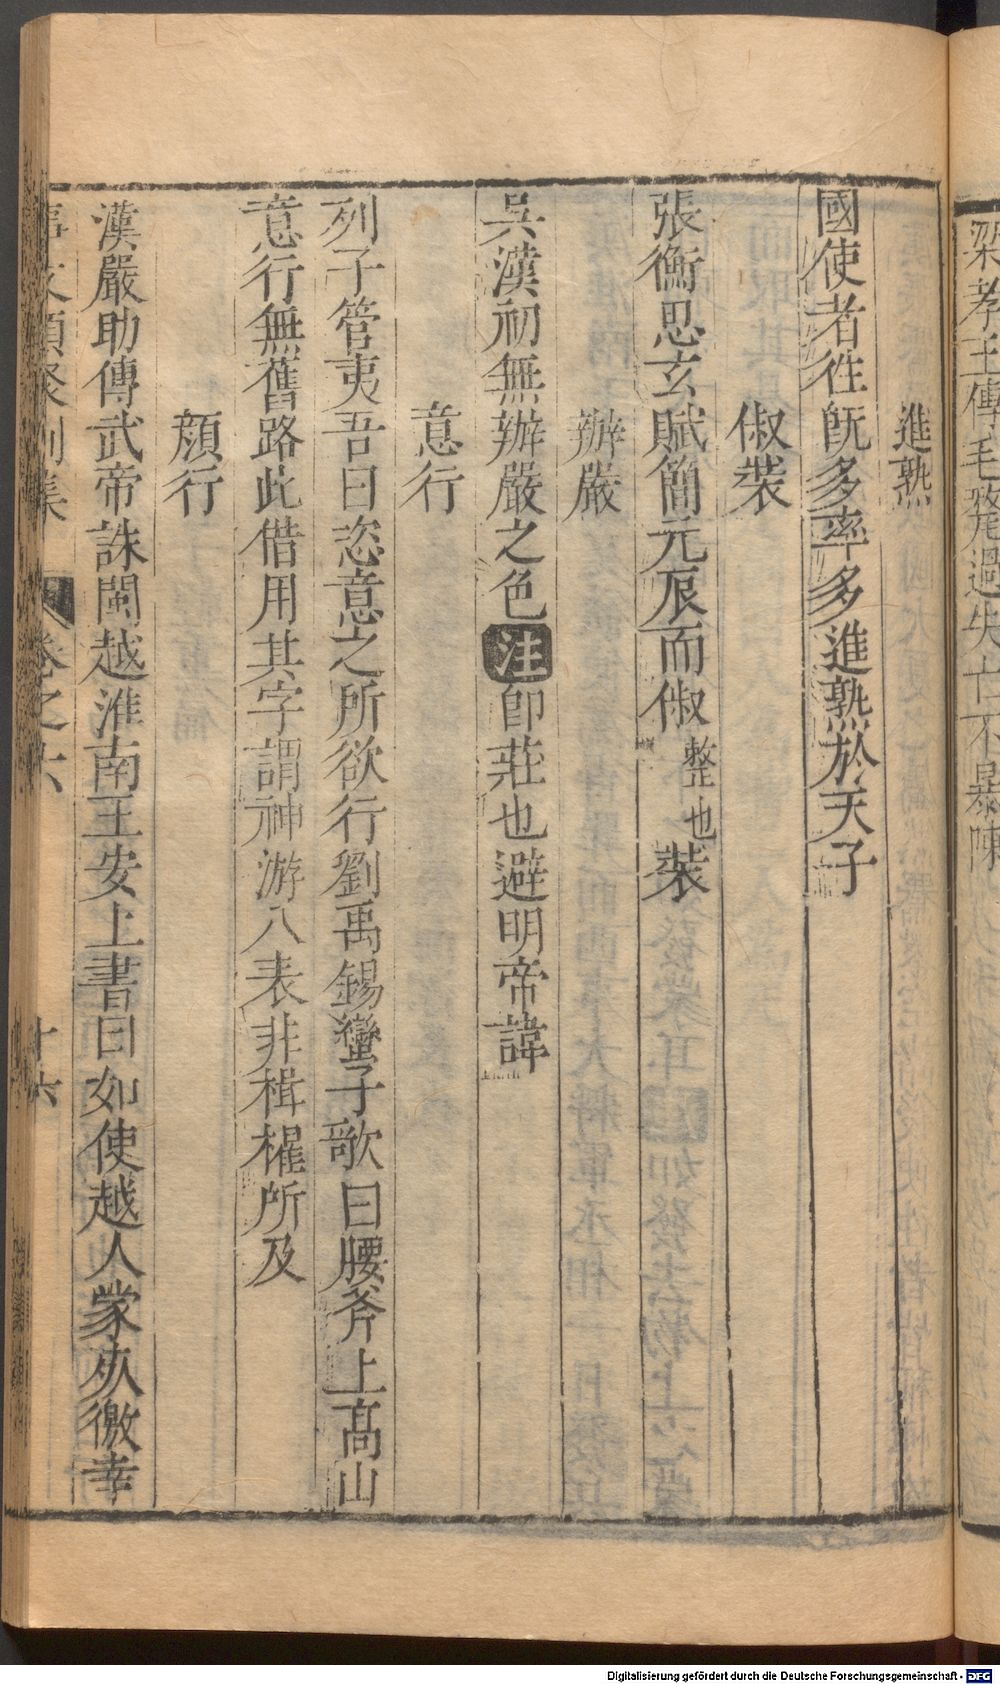 梁孝王傳毛
過失亡不暴
進熟
國使者徃旣多率多進熟於天子
俶裝
張衡思玄賦簡元辰而俶整也裝
辦嚴
吳漢初無辦嚴之色注卽莊也避明帝諱
意行
列子管夷吾曰恣意之所欲行劉禹錫蠻子歌曰腰斧上高山
意行無舊路此借用其字謂神游八表非楫櫂所及
頠行
漢嚴助傳武帝誅閩越淮南王安上書曰如使越人蒙死徼幸
事文類聚別集 卷之六 十六
Digitalisierung gefördert durch die Deutsche Forschungsgemeinschaft - DFG